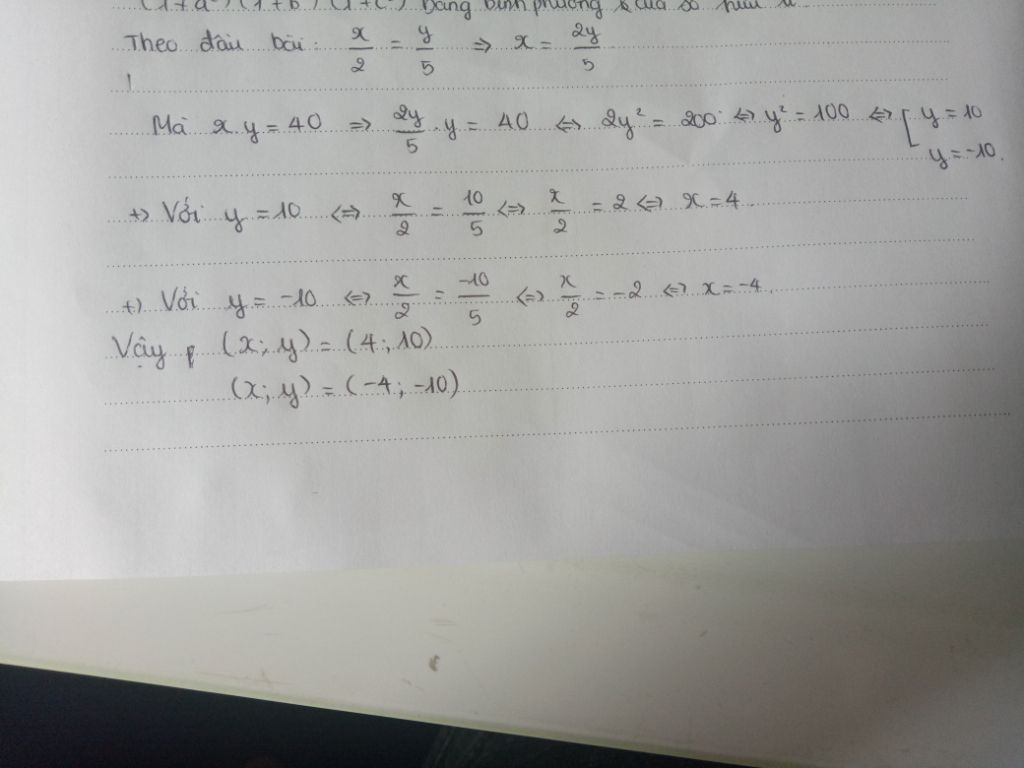 (1+a²)(1+b²)(1+c²) bằng bình phương của số hữu tỉ
Theo đầu bài: x/2 = y/5 ⇒ x = 2y/5
Mà x.y = 40 ⇒ 2y/5 . y = 40 ⇔ 2y² = 200 ⇔ y² = 100 ⇔ [ y = 10
y = -10.
+) Với y = 10 ⇔ x/2 = 10/5 ⇔ x/2 = 2 ⇔ x = 4
+) Với y = -10 ⇔ x/2 = -10/5 ⇔ x/2 = -2 ⇔ x = -4.
Vậy (x; y) = (4; 10)
(x; y) = (-4; -10)